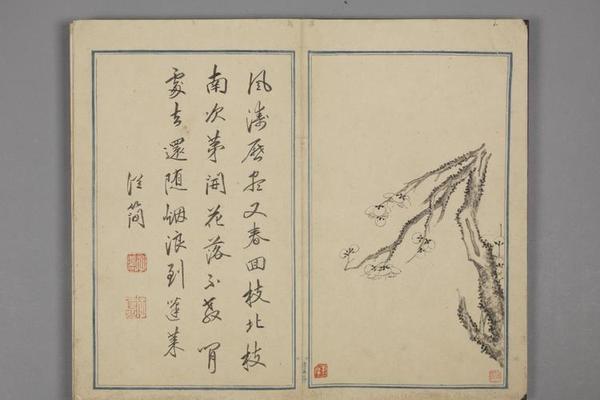 風濤歷盡又春回枝北枝
南次第開花落不教閒
處去還随烟浪到蓬萊
簡